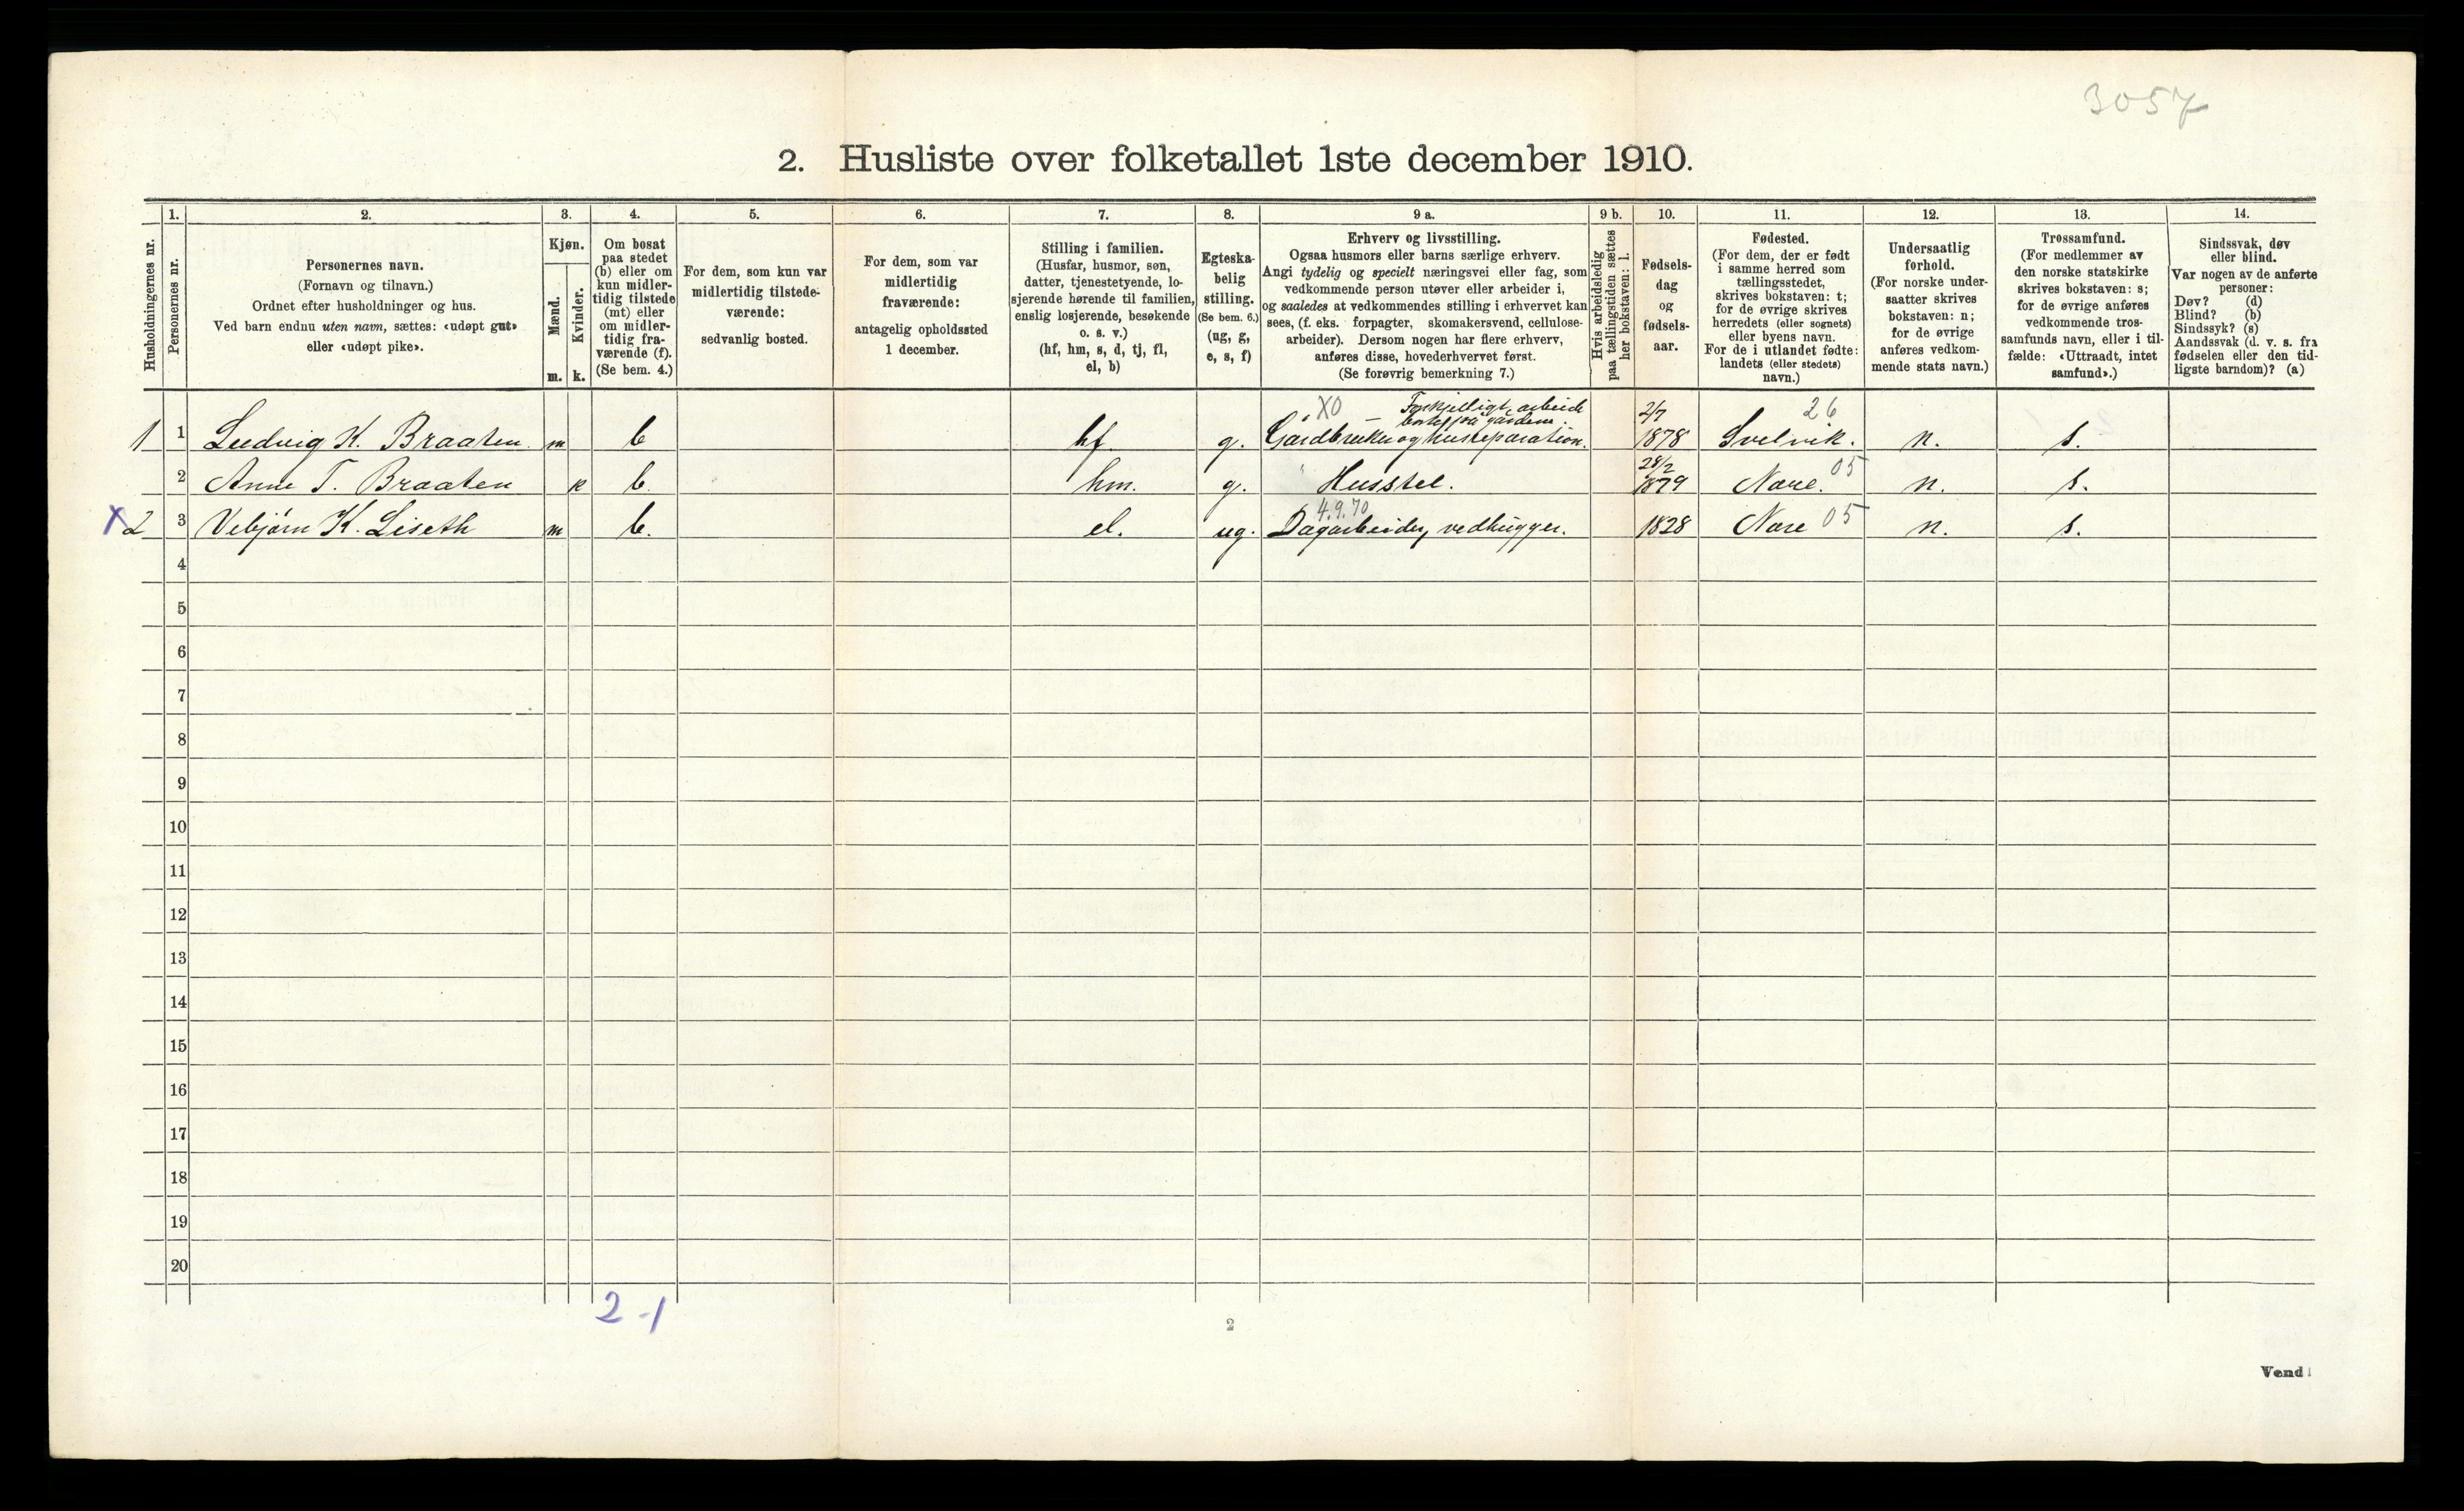 3057
2. Husliste over folketallet 1ste december 1910.
Husholdningernes nr.
1.
Personernes nr.
2.
Personernes navn.
(Fornavn og tilnavn.)
Ordnet efter husholdninger og hus.
Ved barn endnu uten navn, sættes: «udøpt gut»
eller «udøpt pike».
3.
Kjøn.
Mænd.
m.
Kvinder.
k.
4.
Om bosat
paa stedet
(b) eller om
kun midler-
tidig tilstede
(mt) eller
om midler-
tidig fra-
værende (f).
(Se bem. 4.)
5.
For dem, som kun var
midlertidig tilstede-
værende:
sedvanlig bosted.
6.
For dem, som var
midlertidig
fraværende:
antagelig opholdssted
1 december.
7.
Stilling i familien.
(Husfar, husmor, søn,
datter, tjenestetyende, lo-
sjerende hørende til familien,
enslig losjerende, besøkende
o. s. v.)
(hf, hm, s, d, tj, fl,
el, b)
8.
Egteska-
belig
stilling.
(Se bem. 6.)
(ug, g,
e, s, f)
9 a.
Erhverv og livsstilling.
Ogsaa husmors eller barns særlige erhverv.
Angi tydelig og specielt næringsvei eller fag, som
vedkommende person utøver eller arbeider i,
og saaledes at vedkommendes stilling i erhvervet kan
sees, (f. eks. forpagter, skomakersvend, cellulose-
arbeider). Dersom nogen har flere erhverv,
anføres disse, hovederhvervet først.
(Se forøvrig bemerkning 7.)
9 b.
Hvis arbeidsledig
paa tællingstiden sættes
her bokstaven: l.
10.
Fødsels-
dag
og
fødsels-
aar.
11.
Fødested.
(For dem, der er født
i samme herred som
tællingsstedet,
skrives bokstaven: t;
for de øvrige skrives
herredets (eller sognets)
eller byens navn.
For de i utlandet fødte:
landets (eller stedets)
navn.)
12.
Undersaatlig
forhold.
(For norske under-
saatter skrives
bokstaven: n;
for de øvrige
anføres vedkom-
mende stats navn.)
13.
Trossamfund.
(For medlemmer av
den norske statskirke
skrives bokstaven: s;
for de øvrige anføres
vedkommende tros-
samfunds navn, eller i til-
fælde: «Uttraadt, intet
samfund».)
14.
Sindssvak, døv
eller blind.
Var nogen av de anførte
personer:
Døv? (d)
Blind? (b)
Sindssyk? (s)
Aandssvak (d. v. s. fra
fødselen eller den tid-
ligste barndom)? (a)
XO — Forskjelligt arbeide 2/7 26
1 1 Ludvig K. Braaten. m b hf. g. Gårdbruker og husreparation. 1878 Svelvik. n. s.
28/2
2 Anne T. Braaten k b. hm. g. Husstel. 1879 Nore. 05 n. s.
4.9.70
X 2 3 Vebjørn K. Liseth m b. el. ug. Dagarbeider, vedhugger. 1828 Nore 05 n. s.
4
5
6
7
8
9
10
11
12
13
14
15
16
17
18
19
20
2 - 1
2
Vend